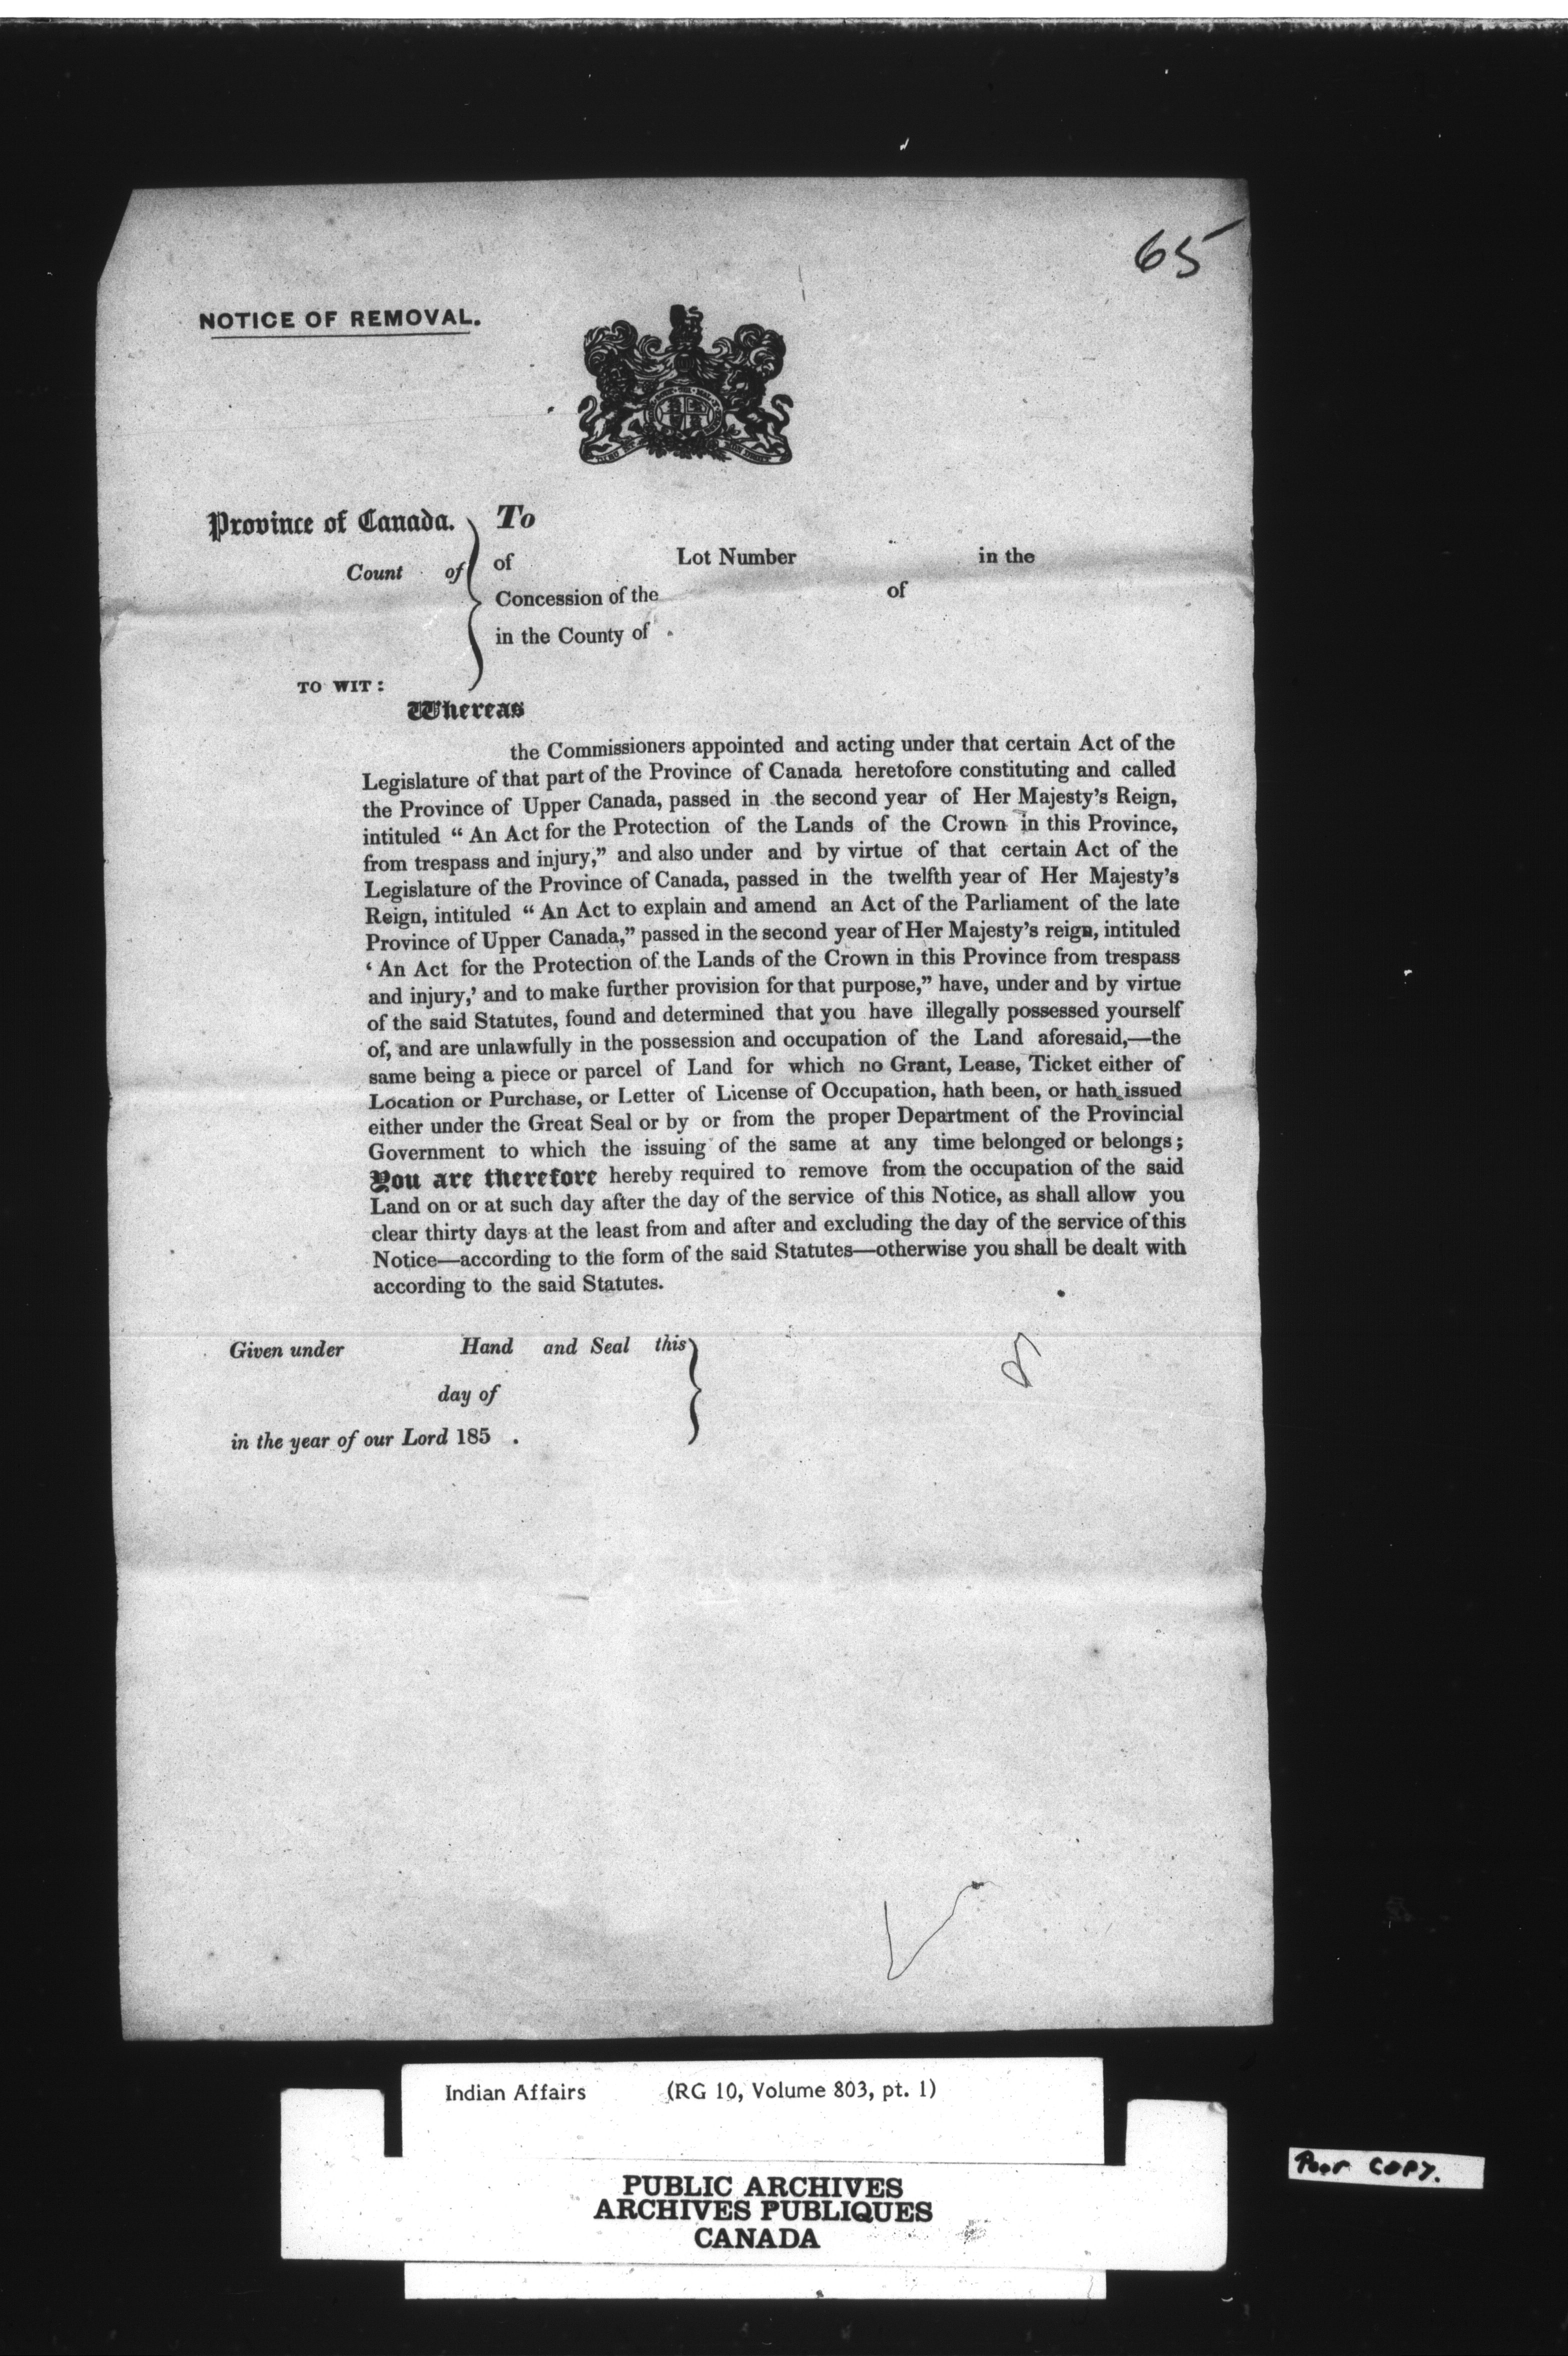 65
NOTICE OF REMOVAL.
Province of Canada.
Count of
TO WIT:
To
of Lot Number in the
Concession of the of
in the County of .
Whereas
the Commissioners appointed and acting under that certain Act of the
Legislature of that part of the Province of Canada heretofore constituting and called
the Province of Upper Canada, passed in the second year of Her Majesty's Reign,
intituled “ An Act for the Protection of the Lands of the Crown in this Province,
from trespass and injury,” and also under and by virtue of that certain Act of the
Legislature of the Province of Canada, passed in the twelfth year of Her Majesty's
Reign, intituled “ An Act to explain and amend an Act of the Parliament of the late
Province of Upper Canada,” passed in the second year of Her Majesty's reign, intituled
‘ An Act for the Protection of the Lands of the Crown in this Province from trespass
and injury,’ and to make further provision for that purpose,” have, under and by virtue
of the said Statutes, found and determined that you have illegally possessed yourself
of, and are unlawfully in the possession and occupation of the Land aforesaid,—the
same being a piece or parcel of Land for which no Grant, Lease, Ticket either of
Location or Purchase, or Letter of License of Occupation, hath been, or hath issued
either under the Great Seal or by or from the proper Department of the Provincial
Government to which the issuing of the same at any time belonged or belongs;
You are therefore hereby required to remove from the occupation of the said
Land on or at such day after the day of the service of this Notice, as shall allow you
clear thirty days at the least from and after and excluding the day of the service of this
Notice—according to the form of the said Statutes—otherwise you shall be dealt with
according to the said Statutes.
Given under Hand and Seal this
day of
in the year of our Lord 185 .
Indian Affairs (RG 10, Volume 803, pt. 1)
PUBLIC ARCHIVES
ARCHIVES PUBLIQUES
CANADA
Poor COPY.